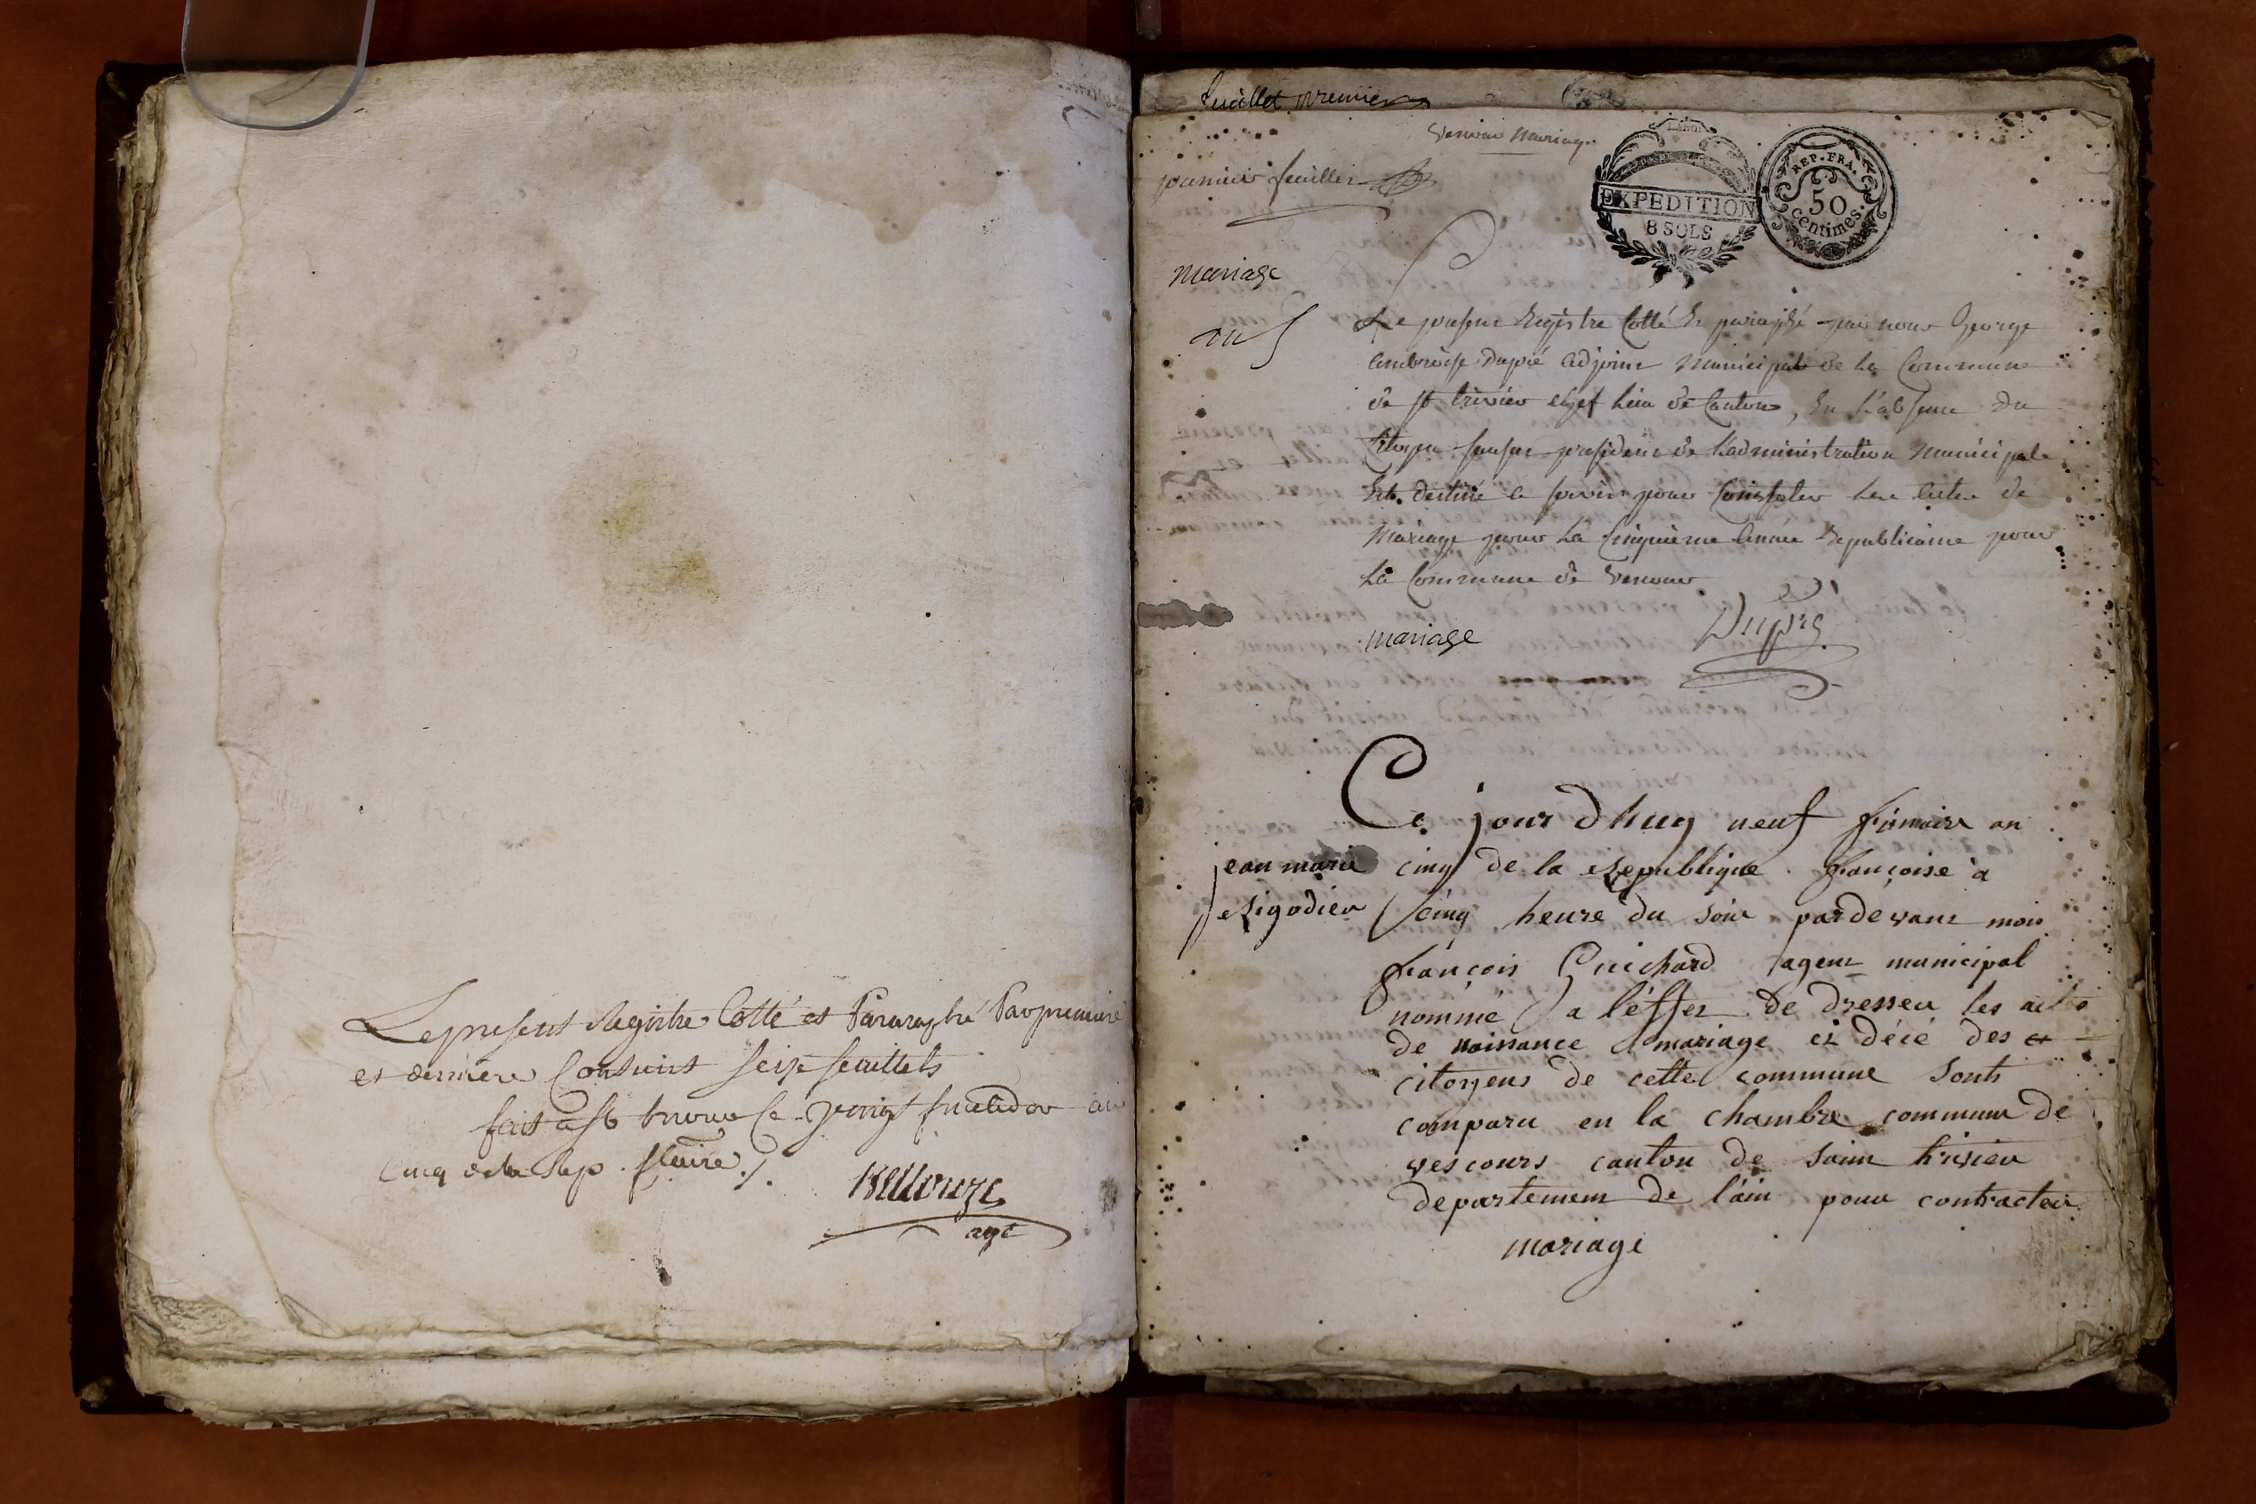 Le present Registre Cotté et Pararaphé Par premiere
et derniere Contient seize feuillets
fait a St trivier ce vingt fructidor an
Cinq de la Rep. f.caire ./.
agt
feuillet premier
Vescour Mariage
premier feuillet
EXPEDITION
8 SOLS
REP. FRA.
50
centimes.
Mariage
an 5
Le present Registre Cotté Et paraphé par nous George
Ambroise Dupré adjoint Municipal de la Commune
de st trivier chef lieu de Canton, En l'absence du
Citoyen president de L'administration Municipale
Est destiné a servir pour Constater les actes de
Mariage pour La Cinquieme année Republicaine pour
La Commune de Vescour
mariage
Dupré
Ce jour dhuy neuf frimaire an
jean marie
cinq de la Republique françoise à
Rigodier
cinq heure du soir pardevant moi
françois Guichard agent municipal
nommé a léffet de dresser les actes
de naissance mariage et décé des et
citoyens de cette commune sont
comparu en la chambre commune de
vescours canton de saint trivier
departement de l'ain pour contracter
mariage